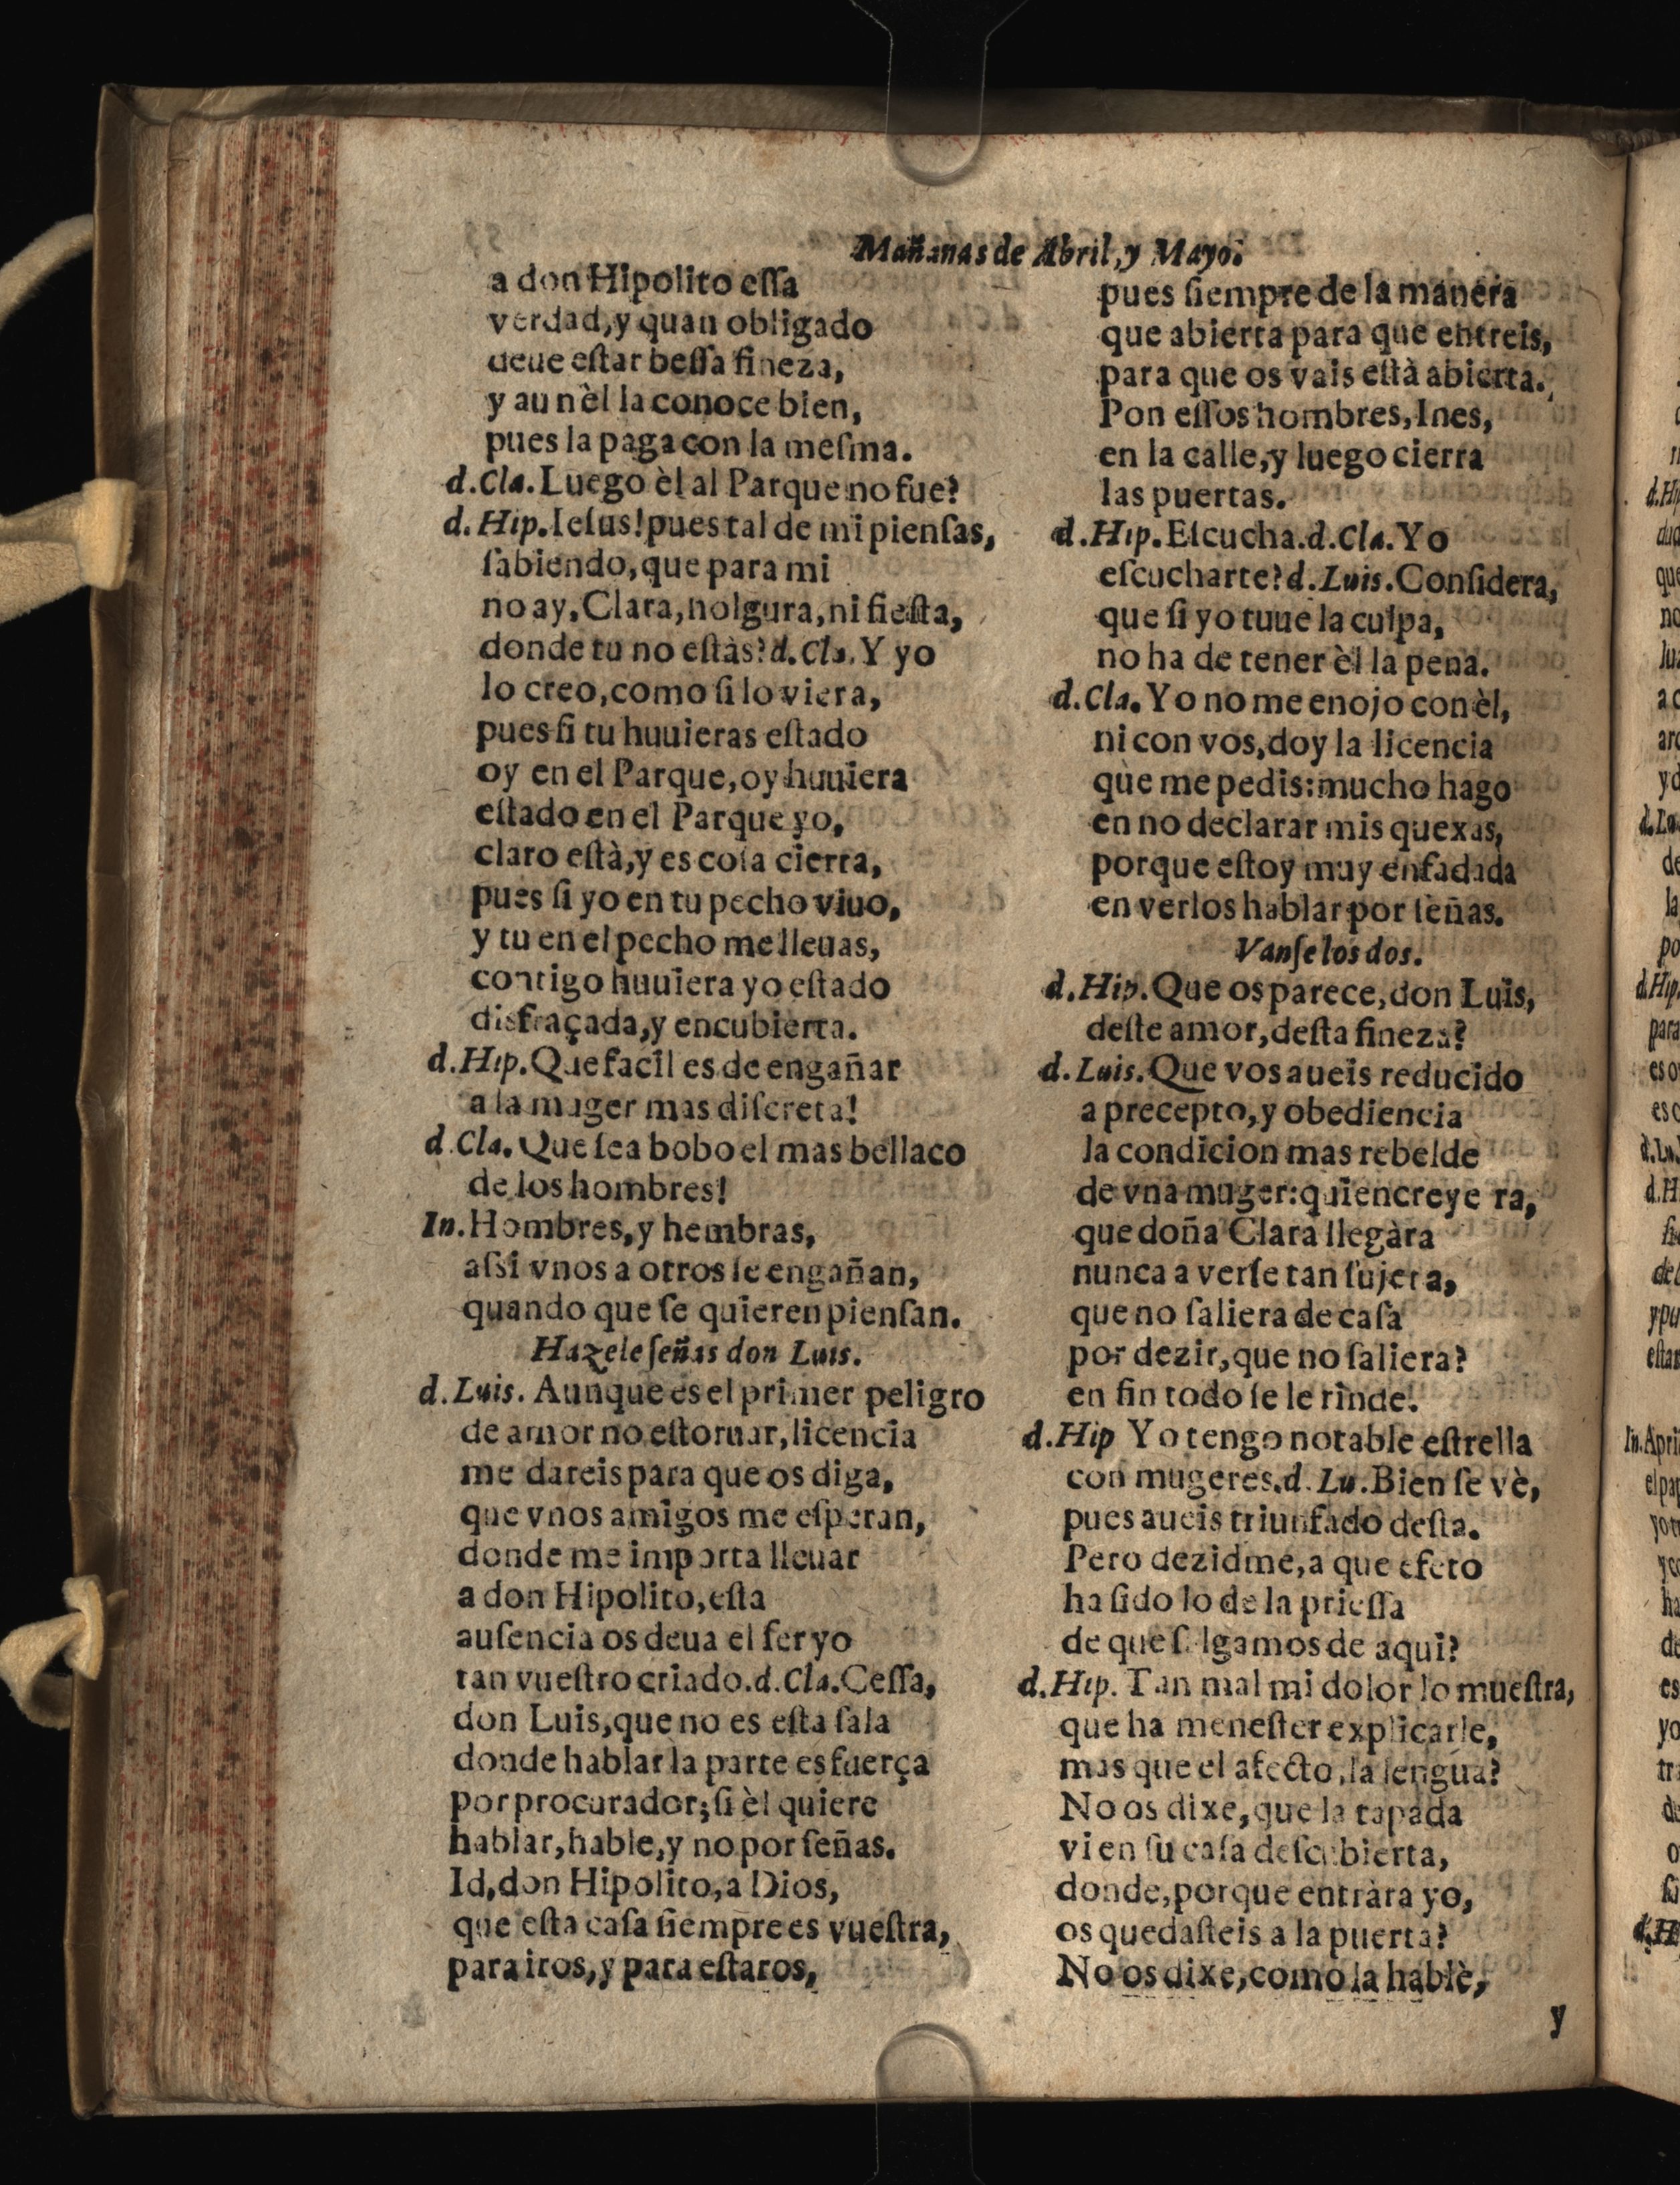 Mañanas de Abril, y Mayo.
a don Hipolito eſſa
verdad, y quan obligado
deue eſtar beſſa fineza,
y aun èl la conoce bien,
pues la paga con la meſma.
d.Cla. Luego èl al Parque no fue?
d.Hip. Ieſus! pues tal de mi pienſas,
ſabiendo, que para mi
no ay, Clara, nolgura, ni fieſta,
donde tu no eſtàs? d.Cla. Y yo
lo creo, como ſi lo viera,
pues ſi tu huuieras eſtado
oy en el Parque, oy huuiera
eſtado en el Parque yo,
claro eſtà, y es coſa cierta,
pues ſi yo en tu pecho viuo,
y tu en el pecho me lleuas,
contigo huuiera yo eſtado
disfraçada, y encubierta.
d.Hip. Que facil es de engañar
a la muger mas diſcreta!
d.Cla. Que ſea bobo el mas bellaco
de los hombres!
In. Hombres, y hembras,
aſsi vnos a otros ſe engañan,
quando que ſe quieren pienſan.
Hazele ſeñas don Luis.
d.Luis. Aunque es el primer peligro
de amor no eſtoruar, licencia
me dareis para que os diga,
que vnos amigos me eſperan,
donde me importa lleuar
a don Hipolito, eſta
auſencia os deua el ſer yo
tan vueſtro criado. d.Cla. Ceſſa,
don Luis, que no es eſta ſala
donde hablar la parte es fuerça
por procurador; ſi èl quiere
hablar, hable, y no por ſeñas.
Id, don Hipolito, a Dios,
que eſta caſa ſiempre es vueſtra,
para iros, y para eſtaros,
pues ſiempre de la manera
que abierta para que entreis,
para que os vais eſtà abierta.
Pon eſſos hombres, Ines,
en la calle, y luego cierra
las puertas.
d.Hip. Eſcucha. d.Cla. Yo
eſcucharte? d.Luis. Conſidera,
que ſi yo tuue la culpa,
no ha de tener èl la pena.
d.Cla. Yo no me enojo con èl,
ni con vos, doy la licencia
que me pedis: mucho hago
en no declarar mis quexas,
porque eſtoy muy enfadada
en verlos hablar por ſeñas.
Vanſe los dos.
d.Hip. Que os parece, don Luis,
deſte amor, deſta fineza?
d.Luis. Que vos aueis reducido
a precepto, y obediencia
la condicion mas rebelde
de vna muger: quien creye ra,
que doña Clara llegàra
nunca a verſe tan ſujeta,
que no ſaliera de caſa
por dezir, que no ſaliera?
en fin todo ſe le rinde.
d.Hip Yo tengo notable eſtrella
con mugeres. d.Lu. Bien ſe vè,
pues aueis triunfado deſta.
Pero dezidme, a que efeto
ha ſido lo de la prieſſa
de que ſalgamos de aqui?
d.Hip. Tan mal mi dolor lo mueſtra,
que ha meneſter explicarle,
mas que el afecto, la lengua?
No os dixe, que la tapada
vi en ſu caſa deſcubierta,
donde, porque entràra yo,
os quedaſteis a la puerta?
No os dixe, como la hablè,
y